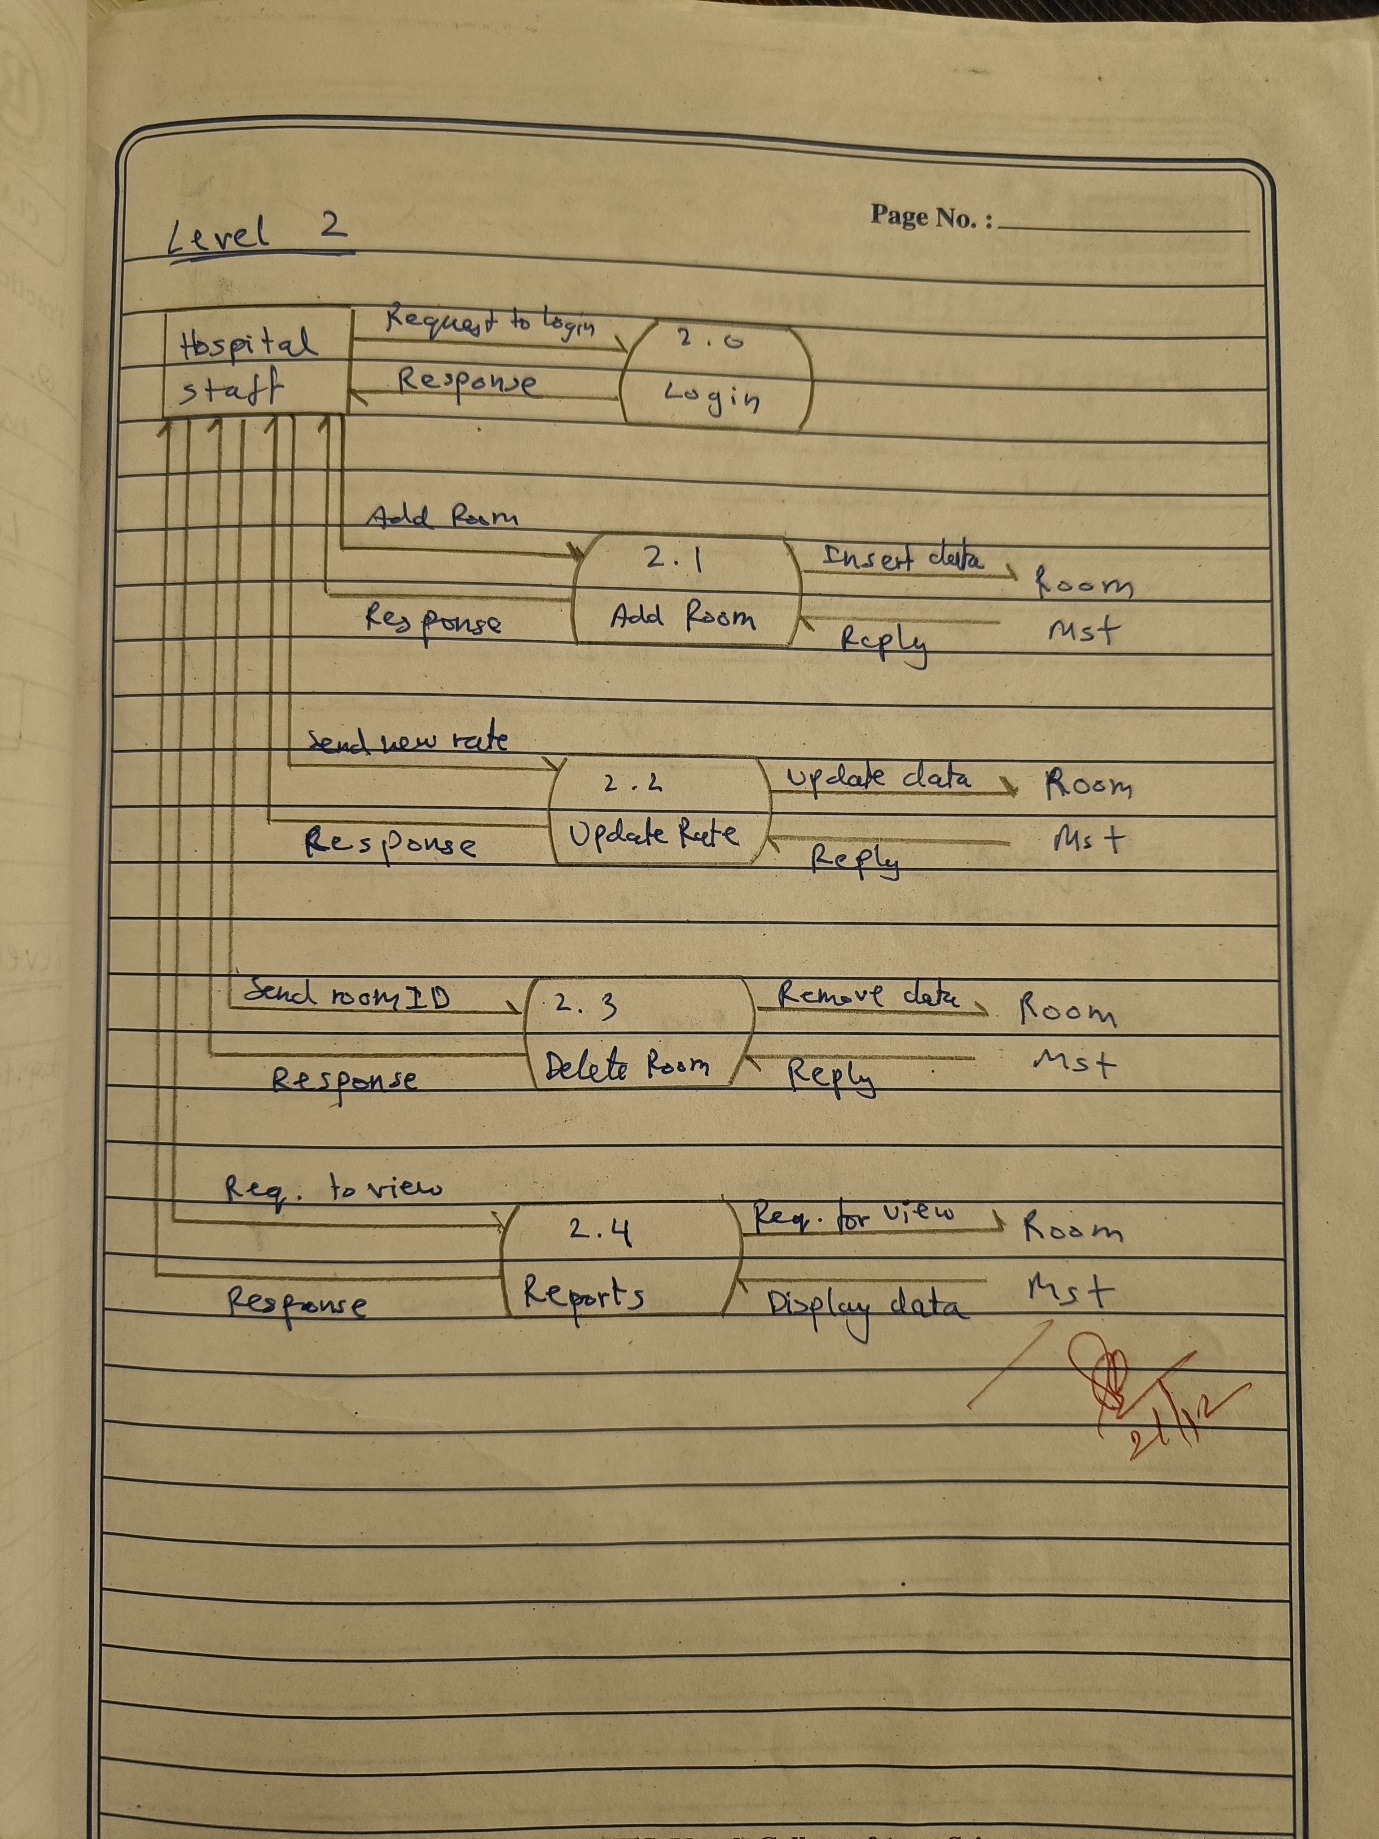 Page No. :
Level 2
Hospital
staff
Request to login
Response
2.0
Login
Add Room
Response
2.1
Add Room
Insert data
Reply
Room
Mst
Send new rate
Response
2.2
Update Rate
Update data
Reply
Room
Mst
Send room ID
Response
2.3
Delete Room
Remove data
Reply
Room
Mst
Req. to view
Response
2.4
Reports
Req. for view
Display data
Room
Mst